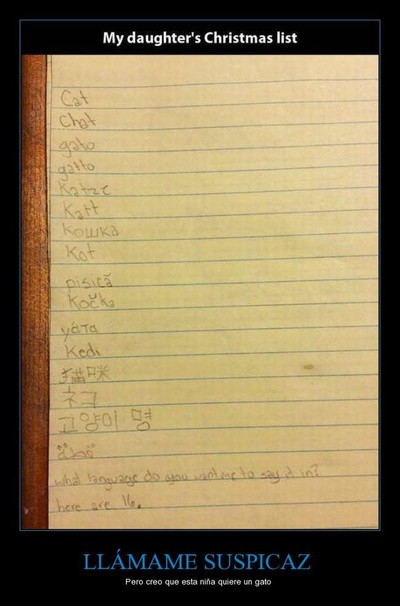 My daughter's Christmas list
Cat
Chat
gato
gatto
Katze
Katt
Кошка
Kot
pisică
Kočka
γάτα
Kedi
猫咪
ネコ
고양이
what language do you want me to say it in?
here are 16.
LLÁMAME SUSPICAZ
Pero creo que esta niña quiere un gato